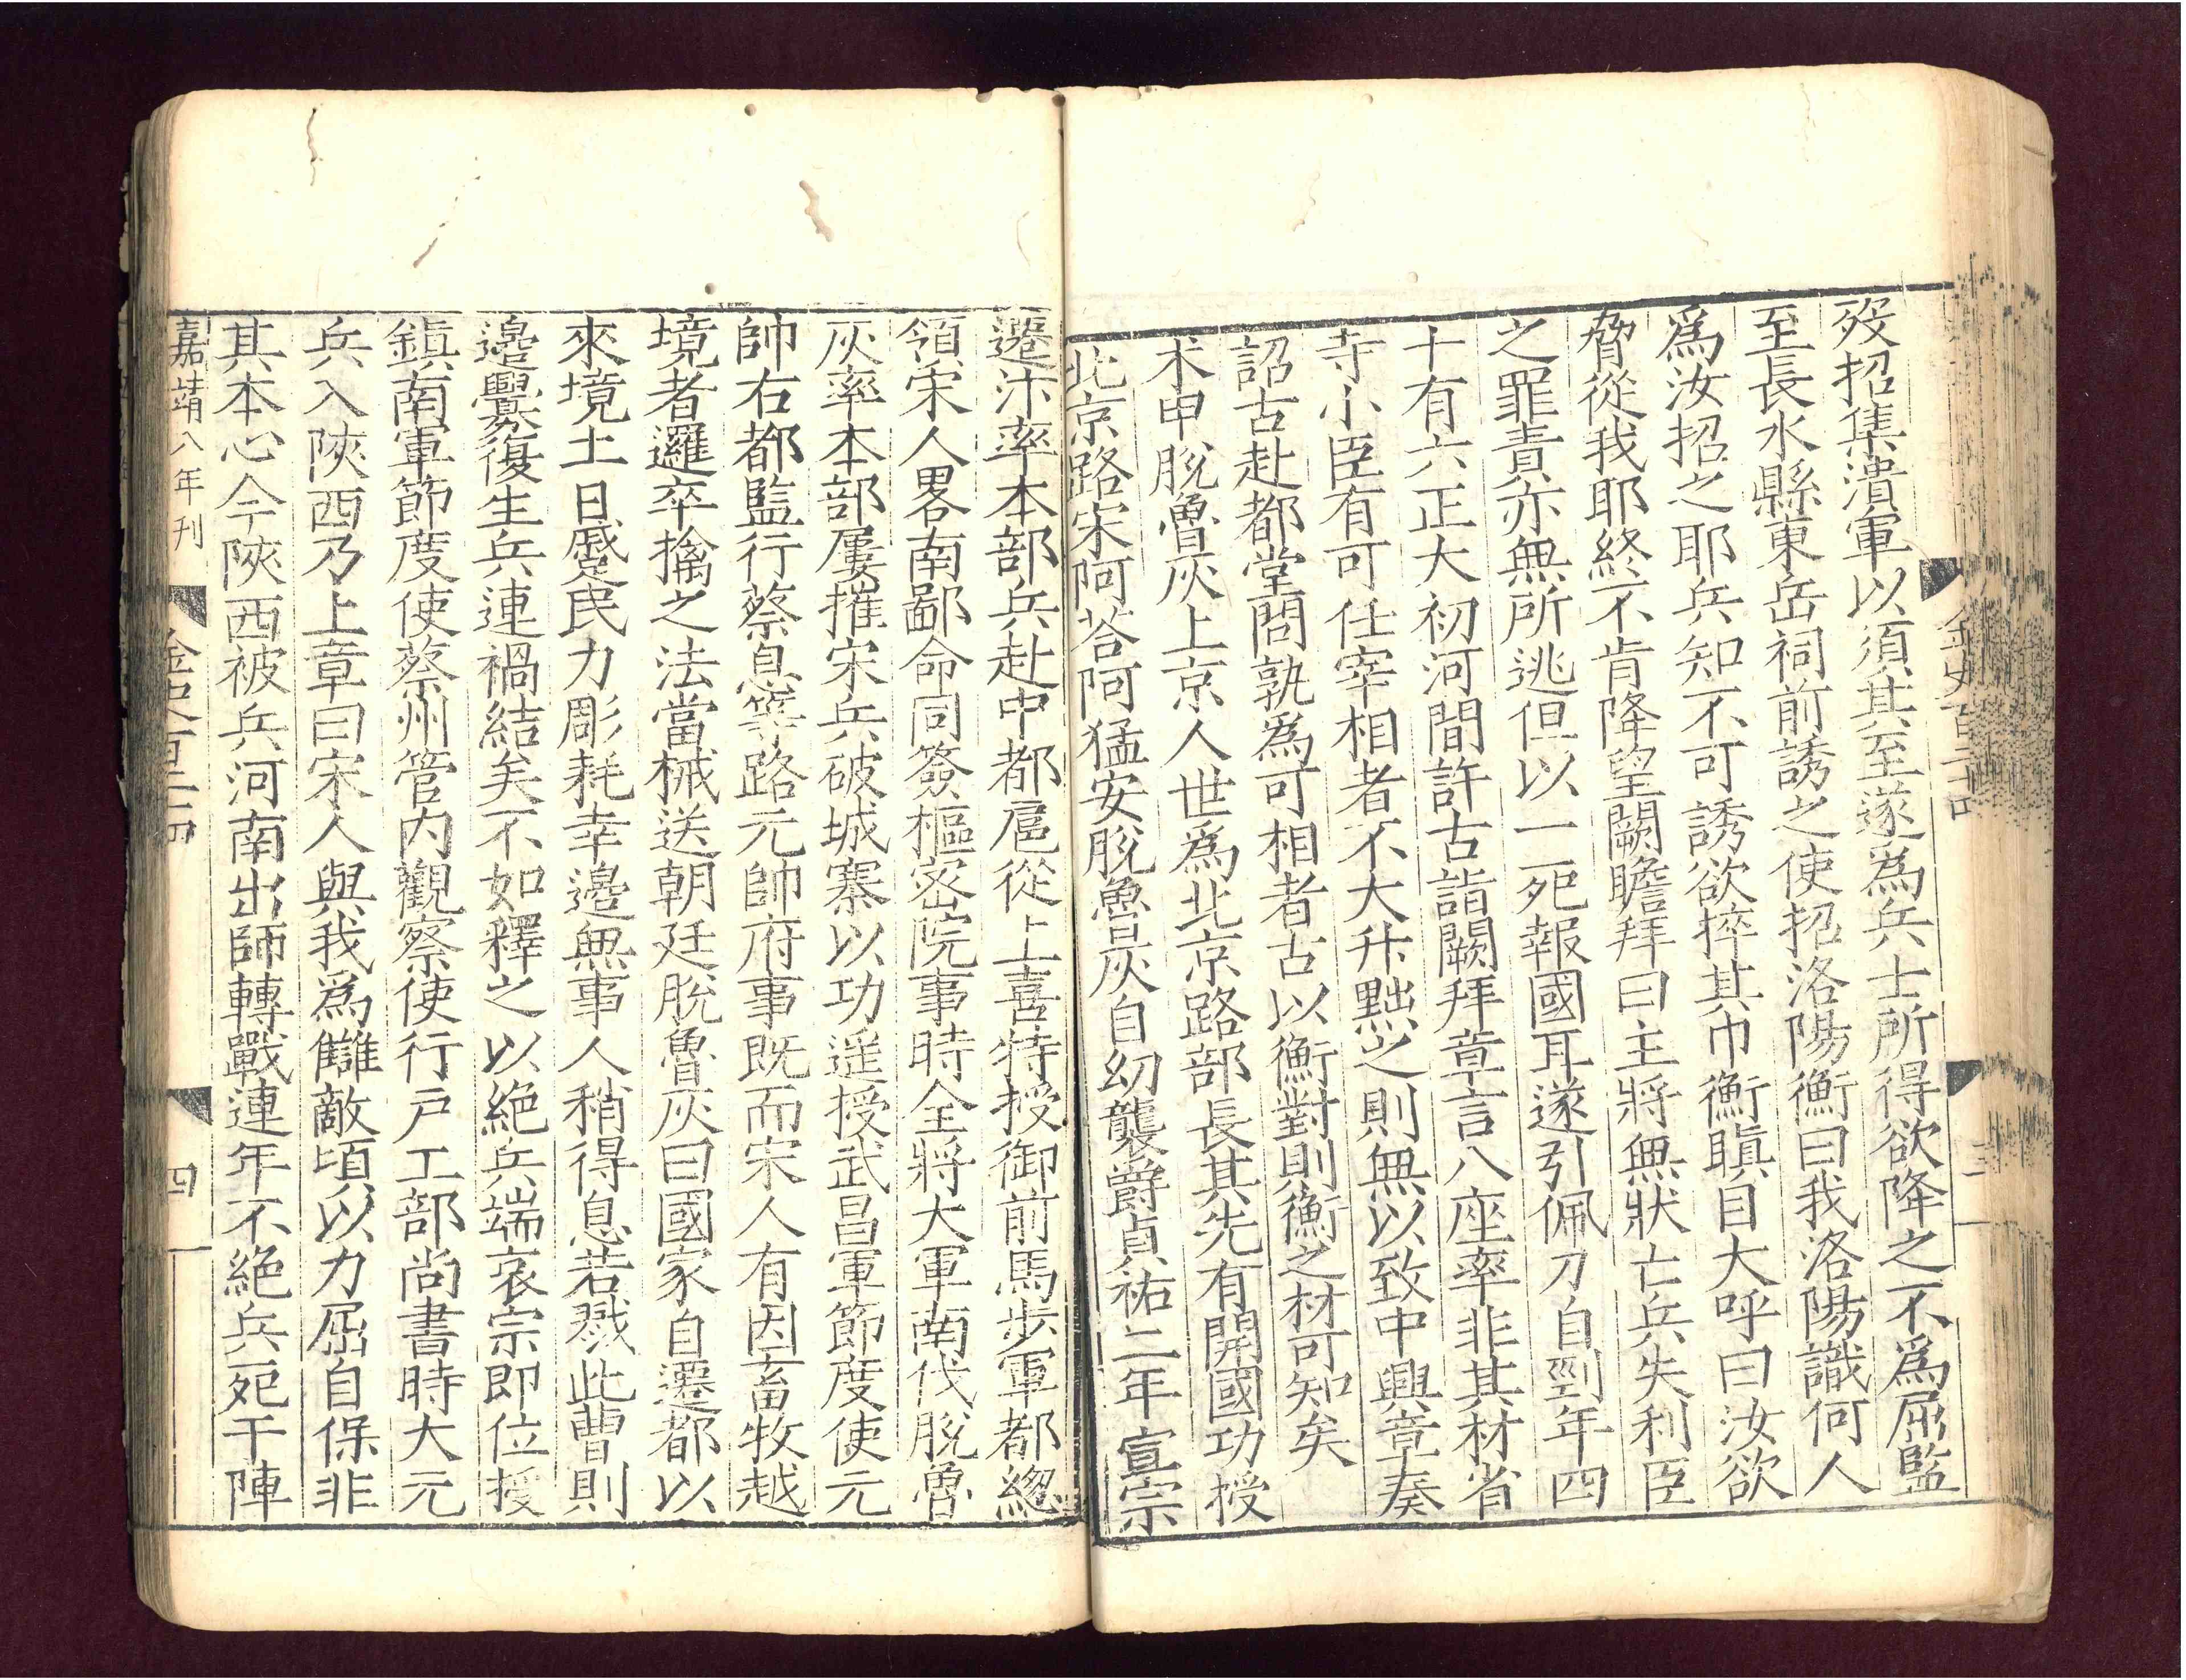 歿招集潰軍以須其至遂為兵士所得欲降之不爲屈監
至長水縣東岳祠前誘之使招洛陽衡曰我洛陽識何人
爲汝招之耶兵知不可誘欲捽其巾衡瞋目大呼曰汝欲
脅從我耶終不肯降望闕瞻拜曰主將無狀亡兵失利臣
之罪責亦無所逃但以一死報國耳遂引佩刀自剄年四
十有六正大初河間許古詣闕拜章言八座率非其材省
寺小臣有可任宰相者不大升黜之則無以致中興章奏
詔古赴都堂問孰爲可相者古以衡對則衡之材可知矣
术甲脫魯灰上京人世爲北京路部長其先有開國功授
北京路宋阿荅阿猛安脫魯灰自幼襲爵貞祐二年宣宗
遷汴率本部兵赴中都扈從上喜特授御前馬步軍都緫
領宋人畧南鄙命同簽樞密院事時全將大軍南伐脫魯
灰率本部屢摧宋兵破城寨以功遥授武昌軍節度使元
帥右都監行蔡息等路元帥府事既而宋人有因畜牧越
境者邏卒擒之法當械送朝廷脫魯灰曰國家自遷都以
來境土日蹙民力彫耗幸邉無事人稍得息若戮此曹則
邉釁復生兵連禍結矣不如釋之以絕兵端哀宗即位授
鎮南軍節度使蔡州管内觀察使行戶工部尚書時大元
兵入陜西乃上章曰宋人與我爲讎敵頃以力屈自保非
其本心今陜西被兵河南出師轉戰連年不絕兵死于陣
嘉靖八年刊
金史百二十四
四
金史百二十四
三